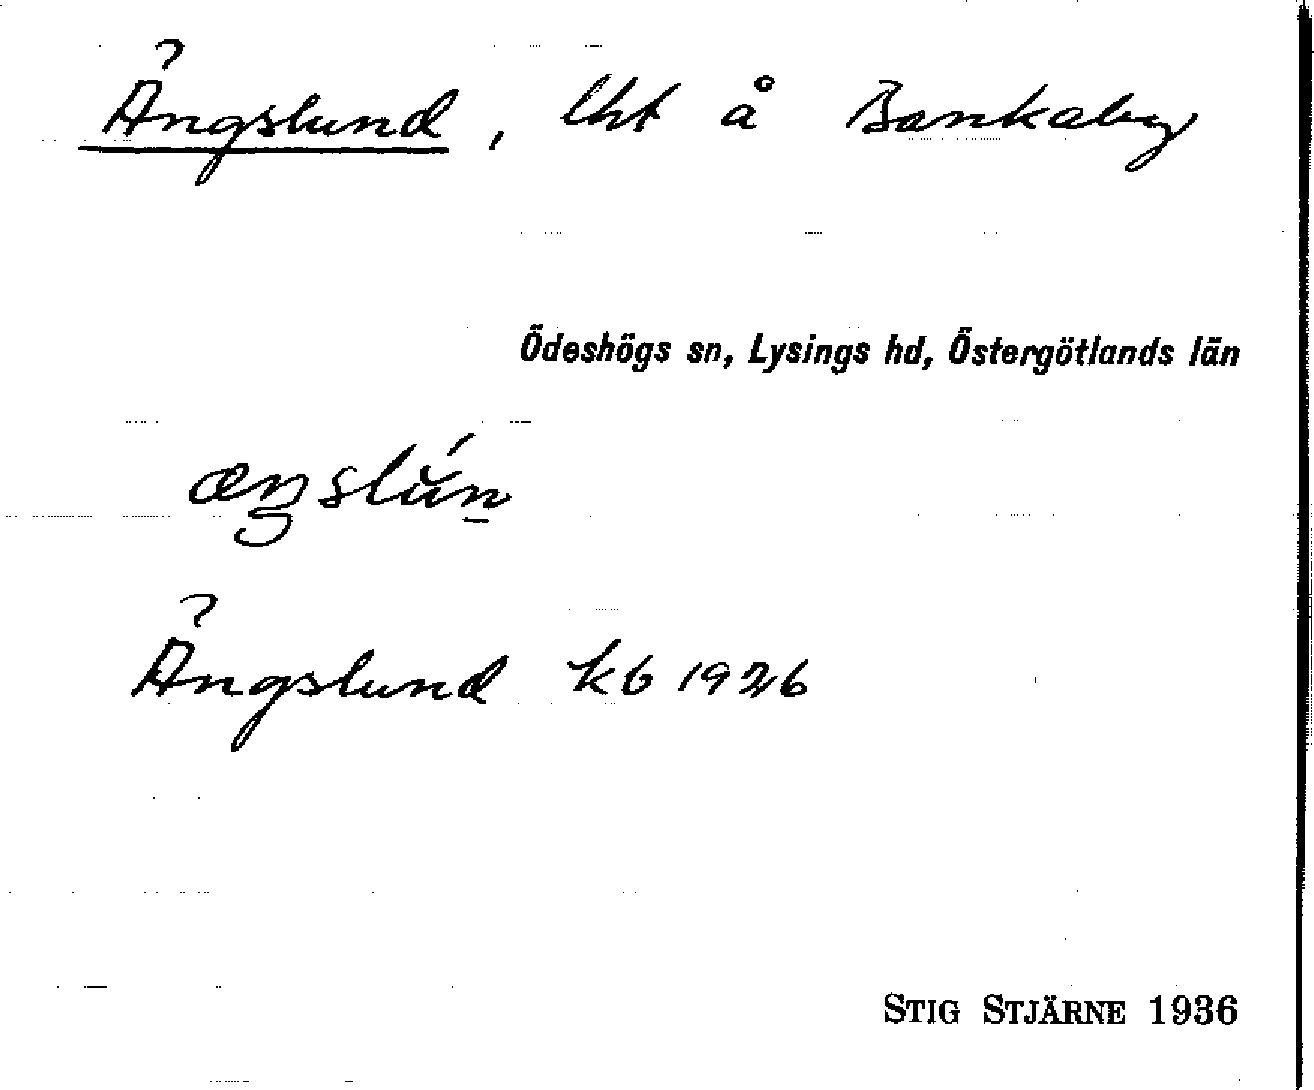 Ängslund, lht å Bankeby
Ödeshögs sn, Lysings hd, Östergötlands län
Ängslund kb 1926
STIG STJÄRNE 1936